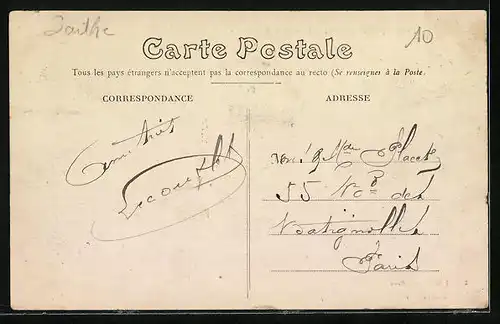 Sarthe
10
Carte Postale
Tous les pays étrangers n'acceptent pas la correspondance au recto (Se renseigner à la Poste.
CORRESPONDANCE
ADRESSE
Amitiés
Placet
55 des
Batignolles
Paris